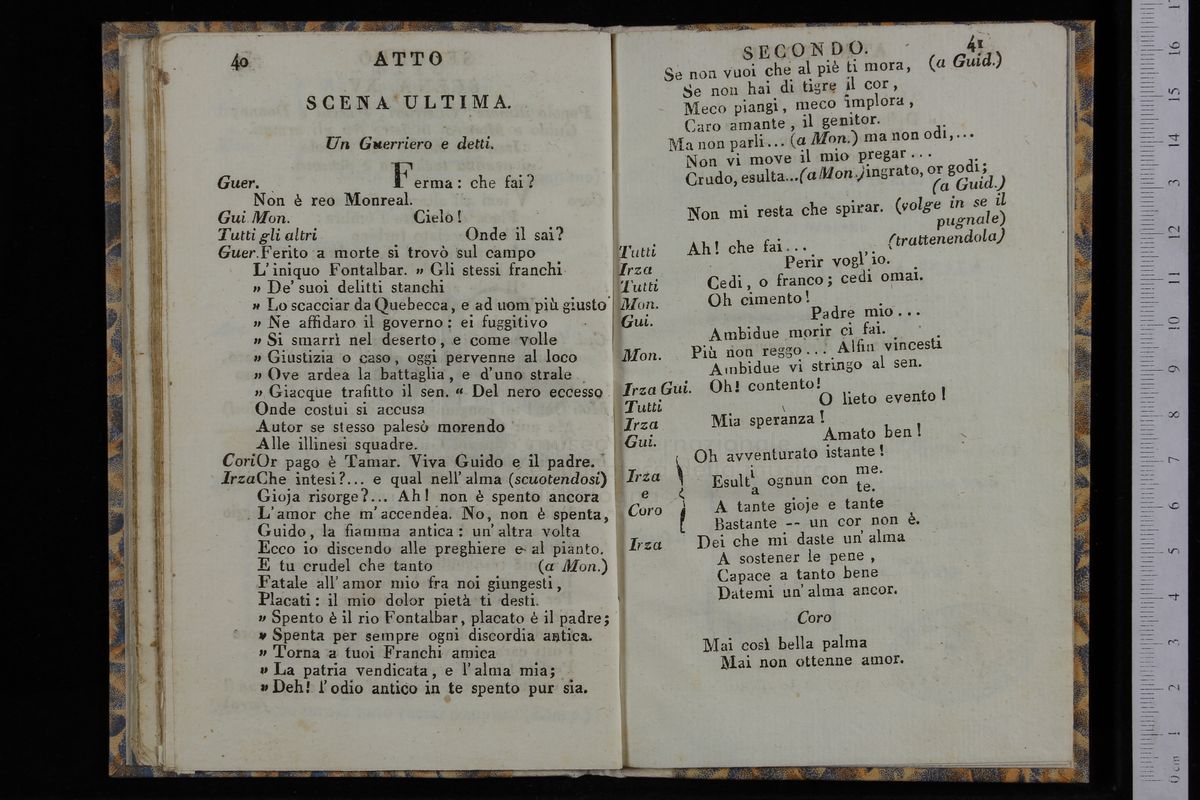 40 ATTO
SCENA ULTIMA.
Un Guerriero e detti.
Guer. Ferma: che fai?
Non è reo Monreal.
Gui Mon. Cielo!
Tutti gli altri Onde il sai?
Guer. Ferito a morte si trovò sul campo
L'iniquo Fontalbar. » Gli stessi franchi
» De' suoi delitti stanchi
» Lo scacciar da Quebecca, e ad uom più giusto
» Ne affidaro il governo: ei fuggitivo
» Si smarrì nel deserto, e come volle
» Giustizia o caso, oggi pervenne al loco
» Ove ardea la battaglia, e d'uno strale
» Giacque trafitto il sen. « Del nero eccesso
Onde costui si accusa
Autor se stesso palesò morendo
Alle illinesi squadre.
Cori Or pago è Tamar. Viva Guido e il padre.
Irza Che intesi?... e qual nell'alma (scuotendosi)
Gioja risorge?... Ah! non è spento ancora
L'amor che m'accendea. No, non è spenta,
Guido, la fiamma antica: un'altra volta
Ecco io discendo alle preghiere e al pianto.
E tu crudel che tanto (a Mon.)
Fatale all'amor mio fra noi giungesti,
Placati: il mio dolor pietà ti desti.
» Spento è il rio Fontalbar, placato è il padre;
» Spenta per sempre ogni discordia antica.
» Torna a tuoi Franchi amica
» La patria vendicata, e l'alma mia;
» Deh! l'odio antico in te spento pur sia.
SECONDO. 41
Se non vuoi che al piè ti mora, (a Guid.)
Se non hai di tigre il cor,
Meco piangi, meco implora,
Caro amante, il genitor.
Ma non parli... (a Mon.) ma non odi,...
Non vi move il mio pregar...
Crudo, esulta...(a Mon.) ingrato, or godi;
(a Guid.)
Non mi resta che spirar. (volge in se il
pugnale)
Tutti Ah! che fai... (trattenendola)
Irza Perir vogl'io.
Tutti Cedi, o franco; cedi omai.
Mon. Oh cimento!
Gui. Padre mio...
Ambidue morir ci fai.
Mon. Più non reggo... Alfin vincesti
Ambidue vi stringo al sen.
Irza Gui. Oh! contento!
Tutti O lieto evento!
Irza Mia speranza!
Gui. Amato ben!
Oh avventurato istante!
Irza e Coro Esulti/a ognun con me./te.
A tante gioje e tante
Bastante -- un cor non è.
Irza Dei che mi daste un'alma
A sostener le pene,
Capace a tanto bene
Datemi un'alma ancor.
Coro
Mai così bella palma
Mai non ottenne amor.